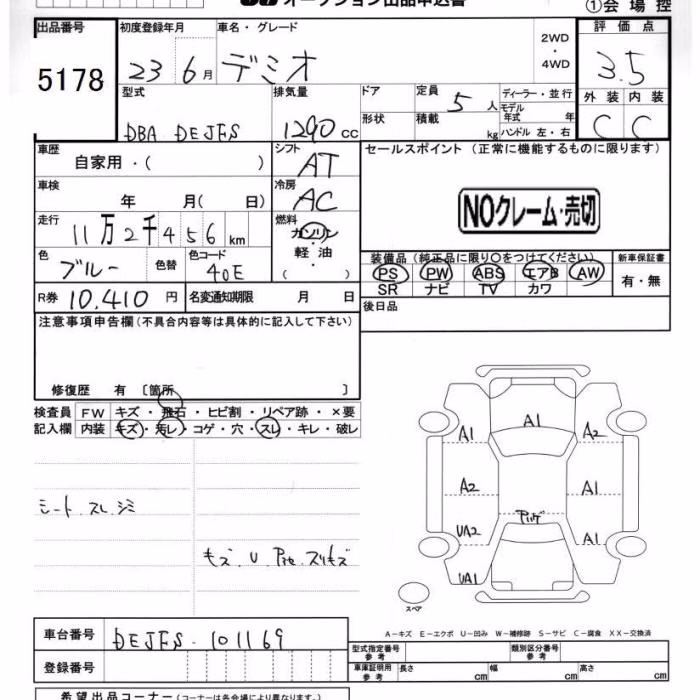 オークション出品申込書
①会場控
出品番号 初度登録年月 車名・グレード 2WD・4WD 評価点
5178 23 6月 デミオ 3.5
型式 排気量 ドア 定員 5人 ディーラー・並行 外装 内装
DBA DEJFS 1290cc 形状 積載 kg モデル年式 年 ハンドル 左・右 C C
車歴 自家用・( ) シフト AT セールスポイント(正常に機能するものに限ります)
車検 年 月( 日) 冷房 AC NOクレーム・売切
走行 11万2千456km 燃料 ガソリン・軽油・( )
色 ブルー 色替 色コード 40E 装備品(純正品に限り○をつけてください) 新車保証書
PS PW ABS エアB AW 有・無
SR ナビ TV カワ
R券 10,410円 名変通知期限 月 日 後日品
注意事項申告欄(不具合内容等は具体的に記入して下さい)
修復歴 有 〔箇所 〕
検査員 FW キズ・飛石・ヒビ割・リペア跡・×要
記入欄 内装 キズ・汚レ・コゲ・穴・スレ・キレ・破レ
シート スレ シミ
キズ U
A1
A1 A2
A2 A1
UA2 A1
UA1
スペア
A-キズ E-エクボ U-凹み W-補修跡 S-サビ C-腐食 XX-交換済
車台番号 DEJFS-101169
登録番号
型式指定番号 参考 類別区分番号 参考
車庫証明用 参考 長さ cm 幅 cm 高さ cm
希望出品コーナー(コーナーは各会場により異なります。)